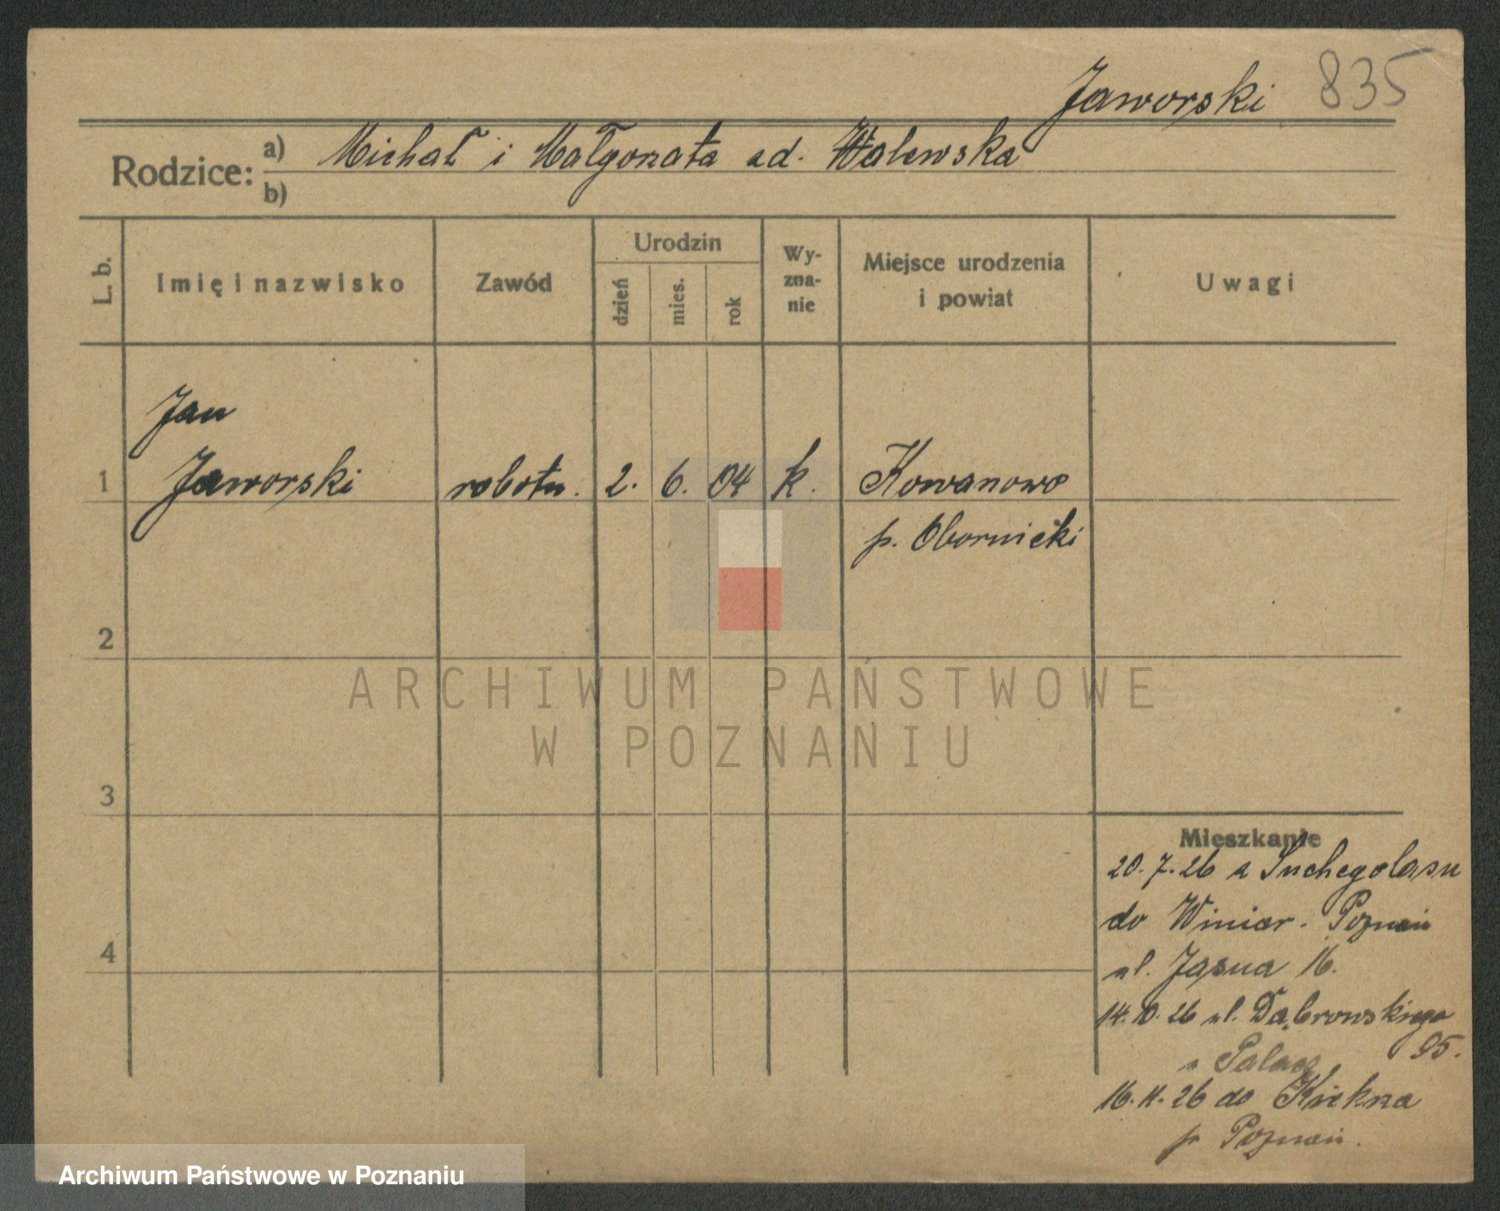 Jaworski 835
Rodzice: a) Michał i Małgorzata zd. Walewska
b)
L. b. Imię i nazwisko Zawód Urodzin dzień mies. rok Wy-zna-nie Miejsce urodzenia i powiat Uwagi
Jan
1 Jaworski robotn. 2. 6. 04 k. Kowanowo
p. Obornicki
2
ARCHIWUM PAŃSTWOWE
W POZNANIU
3
Mieszkanie
20.7.26 z Suchegolasu
do Winiar. Poznań
4
ul. Jasna 16.
14.10.26 ul. Dąbrowskiego
95.
16.11.26 do Kiekrza
p. Poznań.
Archiwum Państwowe w Poznaniu